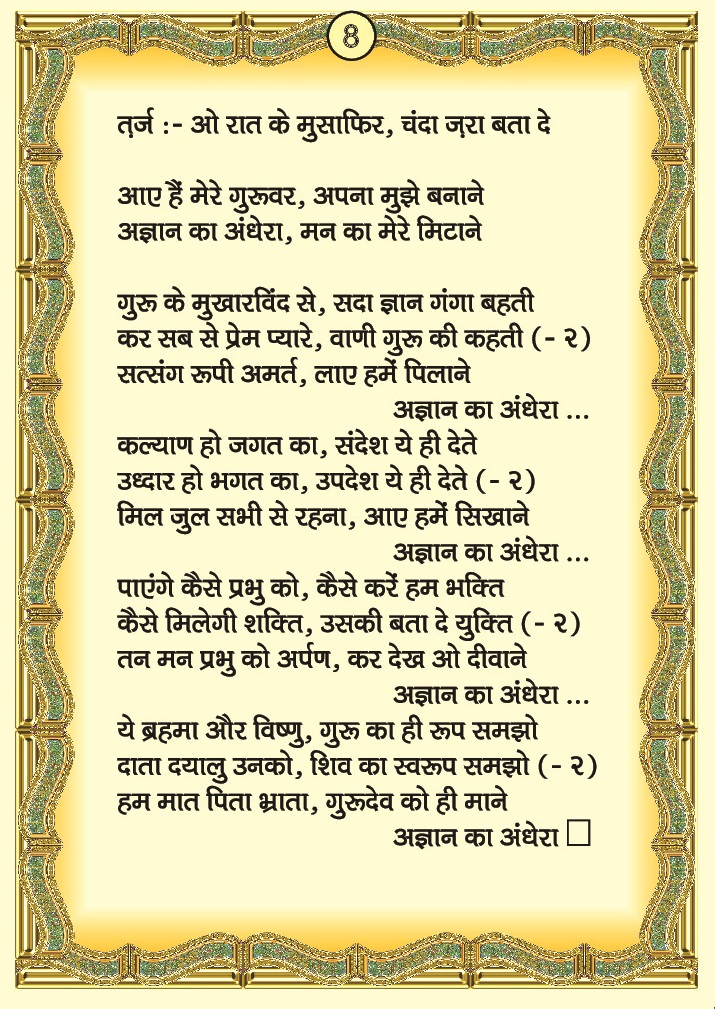 8
त़र्ज :- ओ रात के मुसाफिर, चंदा ज़रा बता दे
आए हैं मेरे गुरूवर, अपना मुझे बनाने
अज्ञान का अंधेरा, मन का मेरे मिटाने
गुरू के मुखारविंद से, सदा ज्ञान गंगा बहती
कर सब से प्रेम प्यारे, वाणी गुरू की कहती (- २)
सत्संग रूपी अमर्त, लाए हमें पिलाने
अज्ञान का अंधेरा ...
कल्याण हो जगत का, संदेश ये ही देते
उध्दार हो भगत का, उपदेश ये ही देते (- २)
मिल जुल सभी से रहना, आए हमें सिखाने
अज्ञान का अंधेरा ...
पाएंगे कैसे प्रभु को, कैसे करें हम भक्ति
कैसे मिलेगी शक्ति, उसकी बता दे युक्ति (- २)
तन मन प्रभु को अर्पण, कर देख ओ दीवाने
अज्ञान का अंधेरा ...
ये ब्रहमा और विष्णु, गुरू का ही रूप समझो
दाता दयालु उनको, शिव का स्वरूप समझो (- २)
हम मात पिता भ्राता, गुरूदेव को ही माने
अज्ञान का अंधेरा □